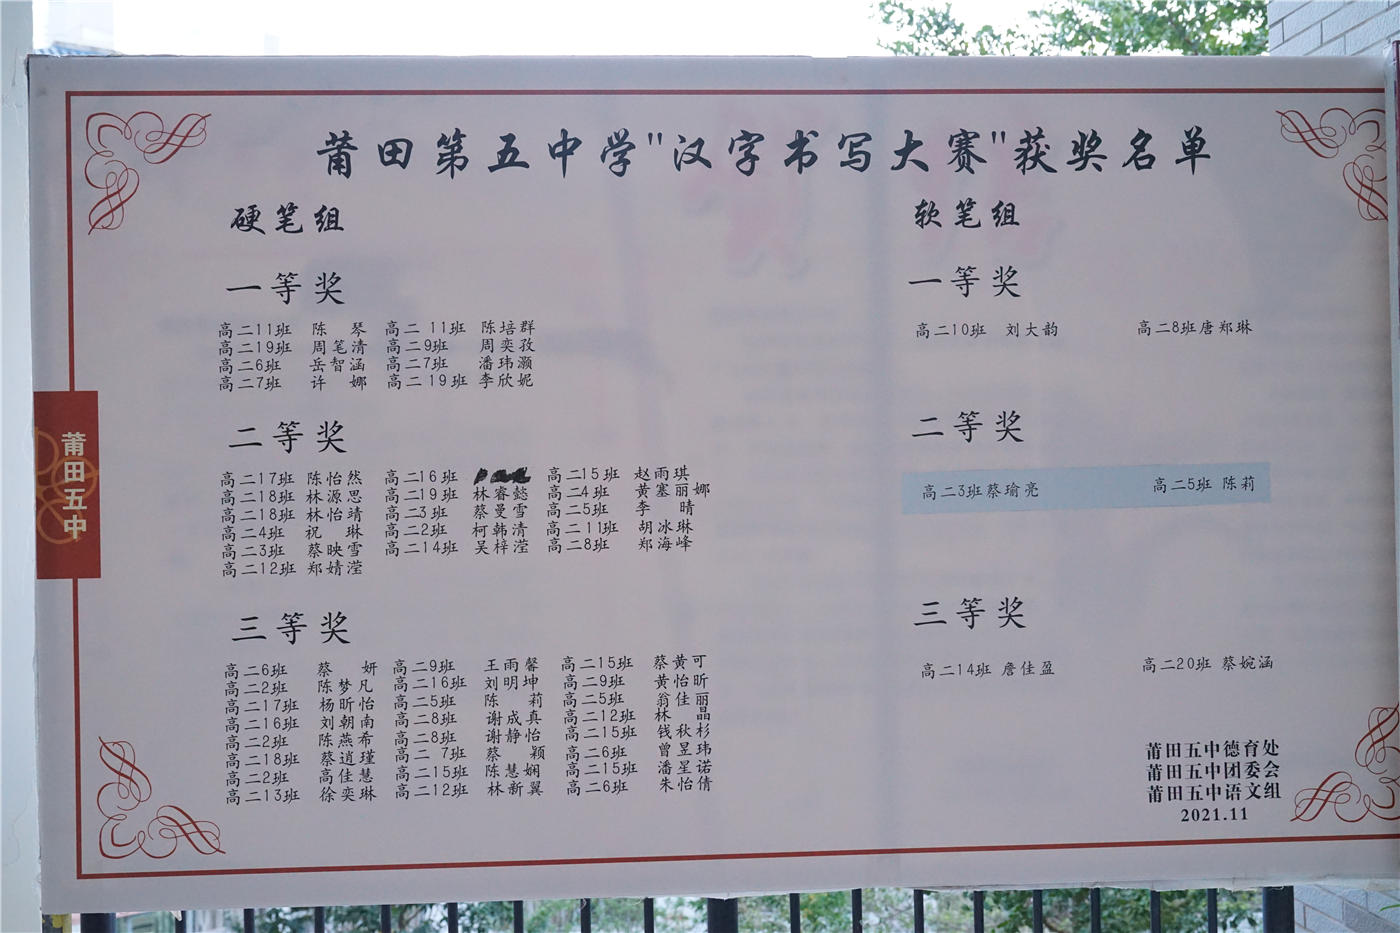 莆田第五中学"汉字书写大赛"获奖名单
莆田五中
硬笔组
一等奖
高二11班 陈 琴 高二 11班 陈培群
高二19班 周笔清 高二9班 周奕孜
高二6班 岳智涵 高二7班 潘玮灏
高二7班 许 娜 高二19班 李欣妮
二等奖
高二17班 陈怡然 高二16班 高二15班 赵雨琪
高二18班 林源思 高二19班 林睿懿 高二4班 黄塞丽娜
高二18班 林怡靖 高二3班 蔡曼雪 高二5班 李 晴
高二4班 祝 琳 高二2班 柯韩清 高二11班 胡冰琳
高二3班 蔡映雪 高二14班 吴梓滢 高二8班 郑海峰
高二12班 郑婧滢
三等奖
高二6班 蔡 妍 高二9班 王雨馨 高二15班 蔡黄可
高二2班 陈梦凡 高二16班 刘明坤 高二9班 黄怡昕
高二17班 杨昕怡 高二5班 陈 莉 高二5班 翁佳丽
高二16班 刘朝南 高二8班 谢成真 高二12班 林 晶
高二2班 陈燕希 高二8班 谢静怡 高二15班 钱秋杉
高二18班 蔡逍瑾 高二 7班 蔡 颖 高二6班 曾昱玮
高二2班 高佳慧 高二15班 陈慧娴 高二15班 潘星诺
高二13班 徐奕琳 高二12班 林新翼 高二6班 朱怡倩
软笔组
一等奖
高二10班 刘大韵 高二8班唐郑琳
二等奖
高二3班蔡瑜亮 高二5班 陈莉
三等奖
高二14班 詹佳盈 高二20班 蔡婉涵
莆田五中德育处
莆田五中团委会
莆田五中语文组
2021.11